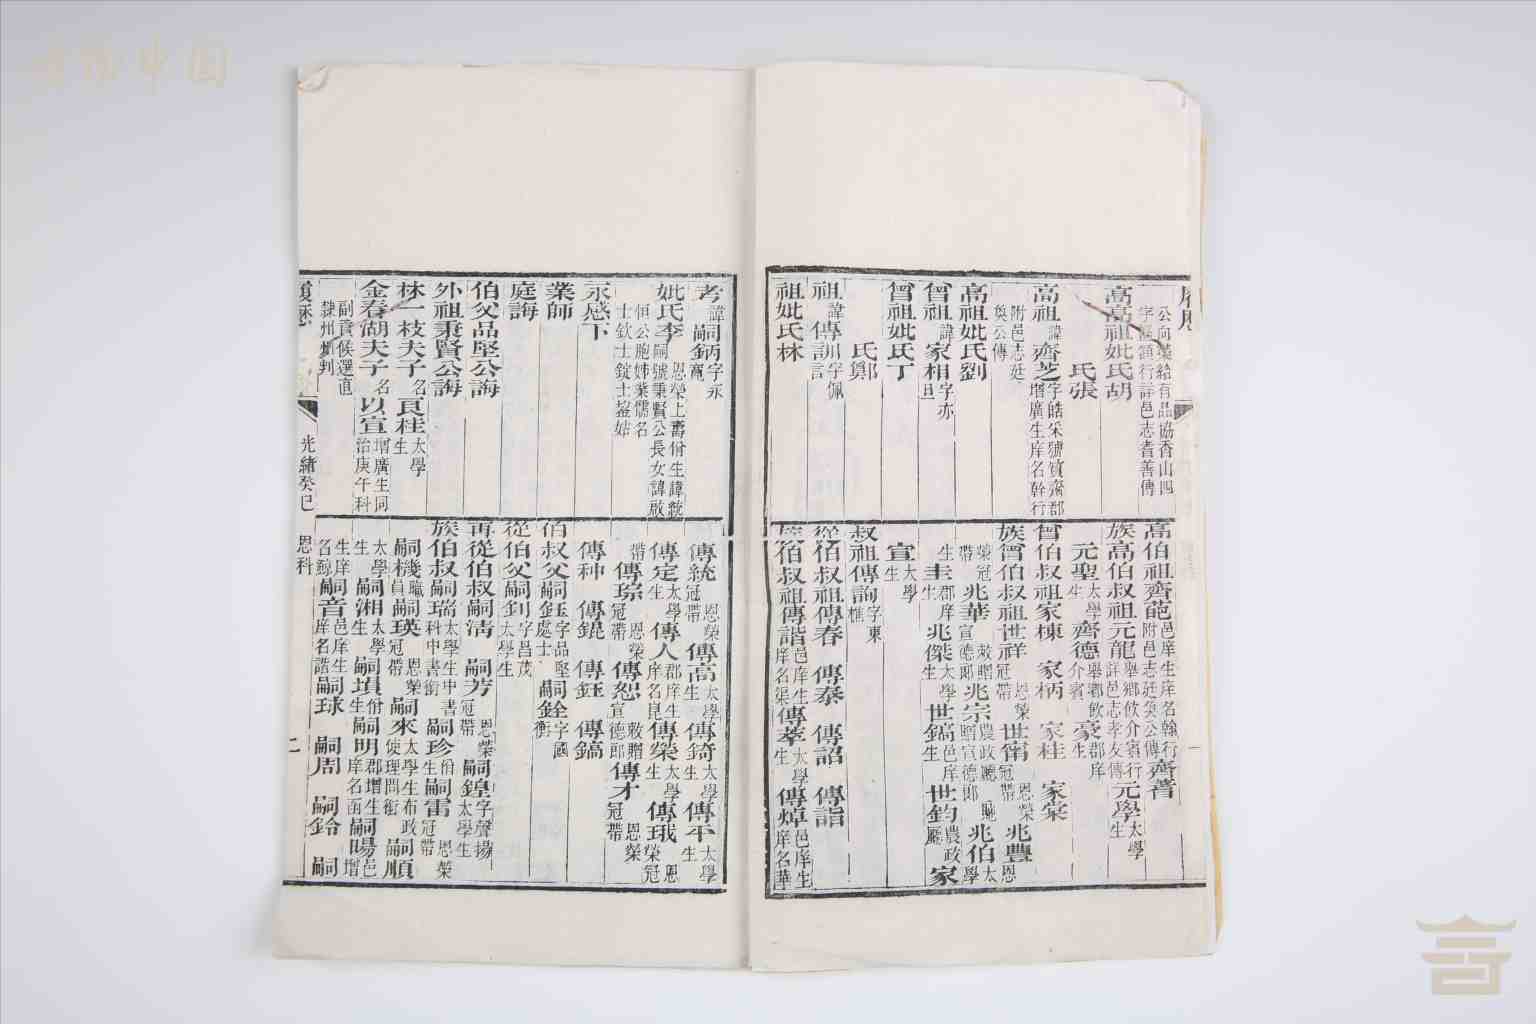 履歷
公向榮給有品協香山四
行詳邑志耆善傳
高高祖妣氏胡
氏張
高祖諱齊芝字皓采號質齋郡
增廣生庠名幹行
附邑志廷
奐公傳
高祖妣氏劉
曾祖諱家相字亦
旦
曾祖妣氏丁
氏鄭
祖諱傳訓字佩
言
祖妣氏林
高伯祖齊葩邑庠生庠名翰行
附邑志廷奐公傳
齊菁
族高伯叔祖元龍舉鄉飲介賓行
詳邑志孝友傳
元學太學
生
元聖太學
生
齊德舉鄉飲
介賓
豪郡庠
生
曾伯叔祖家棟 家柄 家桂 家棠
族曾伯叔祖世祥恩榮
冠帶
世甯恩榮
冠帶
兆豐恩
榮冠
帶
兆華敕贈
宣德郎
兆宗農政廳
贈宣德郎
兆伯太
學
生
圭郡庠
生
兆傑太學
生
世鎬邑庠
生
世鈞農政
廳
家
宣太學
生
叔祖傳詢字東
樵
從伯叔祖傳春 傳泰 傳詔 傳詣
族伯叔祖傳諧邑庠生
庠名渠
傳萃太學
生
傳焯邑庠生
庠名華
考諱嗣鈵字永
寬
妣氏李恩榮上壽佾生諱統
嗣號秉賢公長女諱啟
恒公胞姊業儒名
士欽士錠士㨗姑
永感下
業師
庭誨
伯父品堅公誨
外祖秉賢公誨
林一枝夫子名良桂太學
生
金春湖夫子名以宣增廣生同
治庚午科
副貢候選直
隸州州判
傳統恩榮
冠帶
傳高太學
生
傳錡太學
生
傳平太學
生
傳定太學
生
傳人郡庠生
庠名昆
傳榮太學
生
傳珴恩
榮冠
帶
傳琮恩榮
冠帶
傳恕敕贈
宣德郎
傳才恩榮
冠帶
傳种 傳錕 傳鈺 傳鎬
伯叔父嗣鈺字品堅
處士
嗣銓字國
衡
從伯父嗣釗字昌茂
太學生
再從伯叔嗣清 嗣芳恩榮
冠帶
嗣鍠字聲揚
太學生
族伯叔嗣瑞太學生中書
科中書銜
嗣珍佾
生
嗣雷恩榮
冠帶
嗣錦太學
生
嗣䄎職
員
嗣瑛恩榮
冠帶
嗣來太學生布政
使理問銜
嗣順
太學
生
嗣湘太學
生
嗣塤佾
生
嗣明郡增生
庠名函
嗣暘邑
增
生庠
名鯨
嗣音邑庠生
庠名譜
嗣球 嗣周 嗣鈴 嗣
履歷
光緒癸巳 恩科
二